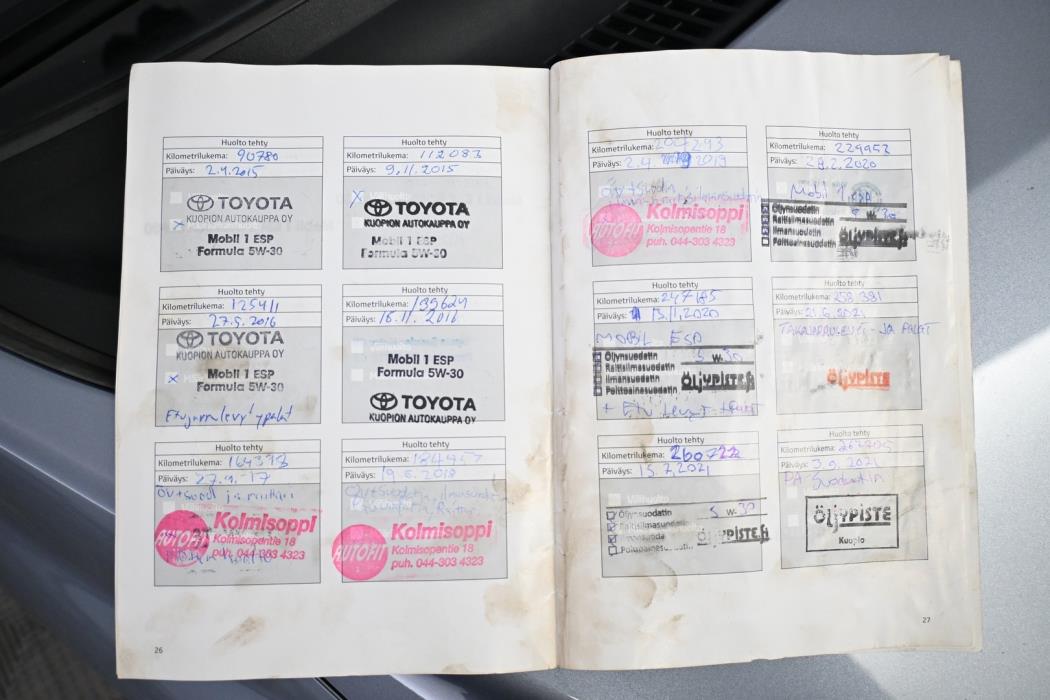 Huolto tehty
Kilometrilukema: 90780
Päiväys: 2.4.2015
TOYOTA
KUOPION AUTOKAUPPA OY
Mobil 1 ESP
Formula 5W-30
Huolto tehty
Kilometrilukema: 112083
Päiväys: 9.11.2015
TOYOTA
KUOPION AUTOKAUPPA OY
Mobil 1 ESP
Formula 5W-30
Huolto tehty
Kilometrilukema: 125411
Päiväys: 27.5.2016
TOYOTA
KUOPION AUTOKAUPPA OY
Mobil 1 ESP
Formula 5W-30
Etujarrulevyt ja palat
Huolto tehty
Kilometrilukema: 139624
Päiväys: 16.11.2016
Mobil 1 ESP
Formula 5W-30
TOYOTA
KUOPION AUTOKAUPPA OY
Huolto tehty
Kilometrilukema:
Päiväys:
AUTOFIT
Kolmisoppi
Kolmisopentie 18
puh. 044-303 4323
Huolto tehty
Kilometrilukema:
Päiväys: 19.6.2018
AUTOFIT
Kolmisoppi
Kolmisopentie 18
puh. 044-303 4323
26
Huolto tehty
Kilometrilukema:
Päiväys:
AUTOFIT
Kolmisoppi
Kolmisopentie 18
puh. 044-303 4323
Huolto tehty
Kilometrilukema: 229952
Päiväys: 28.2.2020
Mobil 1 ESP
Öljynsuodatin 5 W-30
Raitisilmasuodatin
Ilmansuodatin
Polttoainesuodatin
Huolto tehty
Kilometrilukema: 247185
Päiväys: 13.11.2020
MOBIL ESP
Öljynsuodatin 5 W-30
Raitisilmasuodatin
Ilmansuodatin
Polttoainesuodatin ÖLJYPISTE.fi
Huolto tehty
Kilometrilukema: 258 391
Päiväys: 21.6.2021
TAKAJARRULEVYT JA PALAT
ÖLJYPISTE
Huolto tehty
Kilometrilukema: 260722
Päiväys: 15.7.2021
Öljynsuodatin 5 W-30
Raitisilmasuodatin
ÖLJYPISTE.fi
Huolto tehty
Kilometrilukema:
Päiväys: 3.9.2021
PA suodatin
ÖLJYPISTE
Kuopio
27